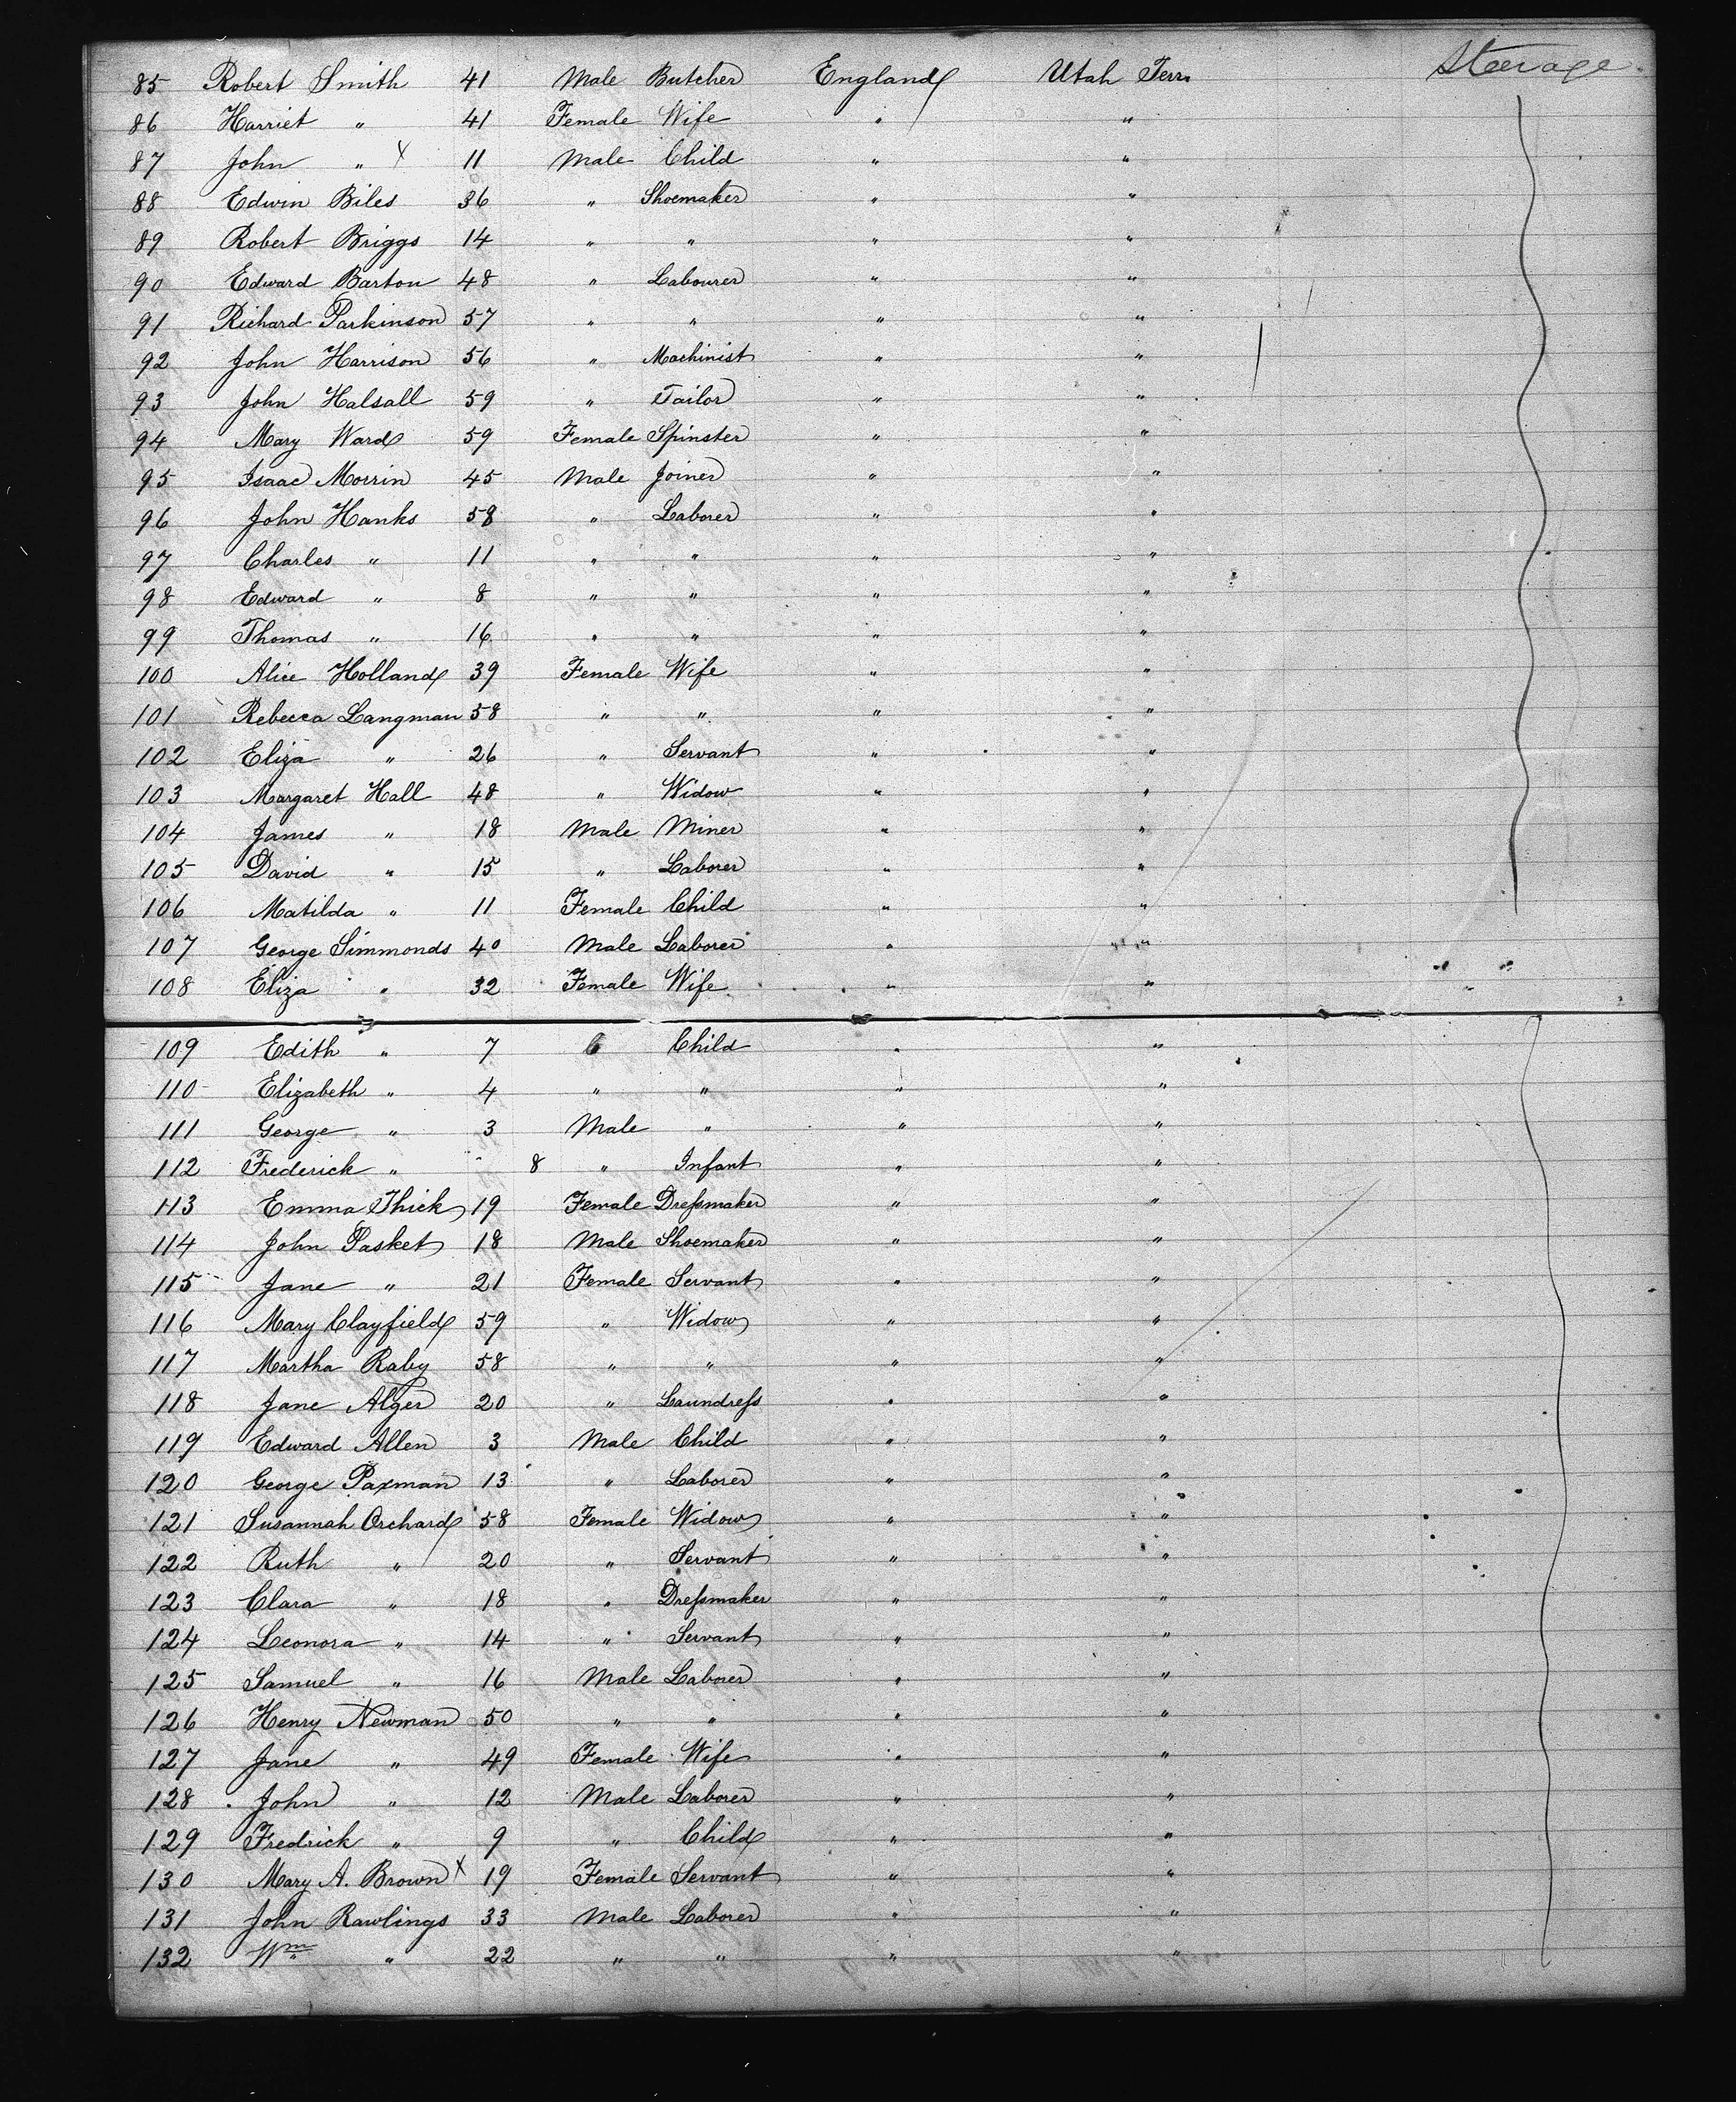 85 Robert Smith 41 Male Butcher England Utah Terr. Steerage
86 Harriet " 41 Female Wife " "
87 John " X 11 Male Child " "
88 Edwin Biles 36 " Shoemaker " "
89 Robert Briggs 14 " " " "
90 Edward Barton 48 " Labourer " "
91 Richard Parkinson 57 " " " "
92 John Harrison 56 " Machinist " "
93 John Halsall 59 " Tailor " "
94 Mary Ward 59 Female Spinster " "
95 Isaac Morrin 45 Male Joiner " "
96 John Hanks 58 " Laborer " "
97 Charles " 11 " " " "
98 Edward " 8 " " " "
99 Thomas " 16 " " " "
100 Alice Holland 39 Female Wife " "
101 Rebecca Langman 58 " " " "
102 Eliza " 26 " Servant " "
103 Margaret Hall 48 " Widow " "
104 James " 18 Male Miner " "
105 David " 15 " Laborer " "
106 Matilda " 11 Female Child " "
107 George Simmonds 40 Male Laborer " "
108 Eliza " 32 Female Wife " "
109 Edith " 7 Child " "
110 Elizabeth " 4 " " " "
111 George " 3 Male " " "
112 Frederick " 8 " Infant " "
113 Emma Thick 19 Female Dressmaker " "
114 John Pasket 18 Male Shoemaker " "
115 Jane " 21 Female Servant " "
116 Mary Clayfield 59 " Widow " "
117 Martha Raby 58 " " " "
118 Jane Alger 20 " Laundress " "
119 Edward Allen 3 Male Child " "
120 George Paxman 13 " Laborer " "
121 Susannah Orchard 58 Female Widow " "
122 Ruth " 20 " Servant " "
123 Clara " 18 " Dressmaker " "
124 Leonora " 14 " Servant " "
125 Samuel " 16 Male Laborer " "
126 Henry Newman 50 " " " "
127 Jane " 49 Female Wife " "
128 John " 12 Male Laborer " "
129 Fredrick " 9 " Child " "
130 Mary A. Brown X 19 Female Servant " "
131 John Rawlings 33 Male Laborer " "
132 Wm " 22 " " " "